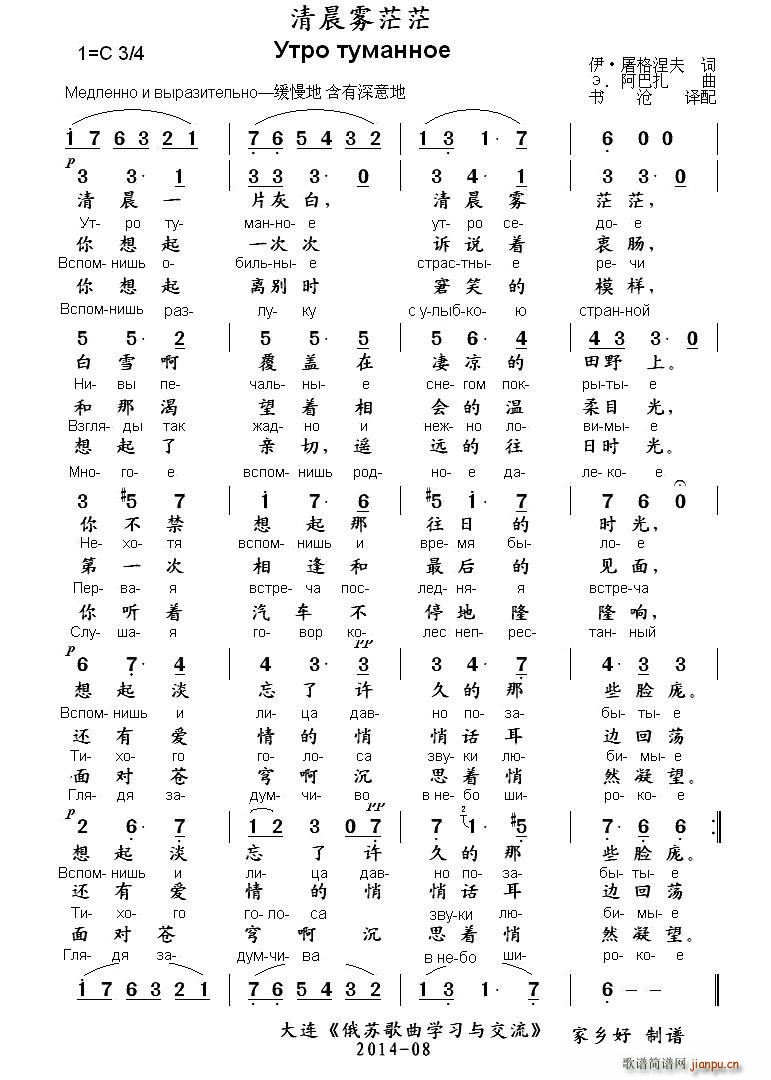 清晨雾茫茫
Утро туманное
1=C 3/4
伊·屠格涅夫 词
Э. 阿巴扎 曲
书沧 译配
Медленно и выразительно—缓慢地 含有深意地
i 7 6 3 2 1 | 7 6 5 4 3 2 | 1 3 1· 7 | 6 0 0 |
p
3 3· 1 | 3 3 3· 0 | 3 4· 1 | 3 3· 0 |
清 晨 一 片灰白, 清 晨 雾 茫 茫,
Ут- ро ту- ман-но- е ут- ро се- до- е
你 想 起 一次次 诉 说 着 衷 肠,
Вспом-нишь о- биль-ны- е страс-тны- е ре- чи
你 想 起 离别时 窘 笑 的 模 样,
Вспом-нишь раз- лу- ку с у-лыб-ко- ю стран-ной
5 5· 2 | 5 5· 5 | 5 6· 4 | 4 3 3· 0 |
白 雪 啊 覆 盖 在 凄 凉 的 田 野 上。
Ни- вы пе- чаль- ны- е сне- гом пок- ры-ты- е
和 那 渴 望 着 相 会 的 温 柔目 光,
Взгля- ды так жад- но и неж-но ло- ви-мы- е
想 起 了 亲 切,遥 远 的 往 日时 光。
Мно- го- е вспом-нишь род- но- е да- ле- ко- е
3 #5 7 | i 7· 6 | #5 i· 7 | 7 6 0
你 不 禁 想 起 那 往 日 的 时 光,
Не- хо-тя вспом-нишь и вре- мя бы- ло- е
第 一 次 相 逢 和 最 后 的 见 面,
Пер- ва- я встре- ча пос- лед-ня- я встре-ча
你 听 着 汽 车 不 停 地 隆 隆 响,
Слу- ша- я го- вор ко- лес неп-рес- тан-ный
p pp
6 7· 4 | 4 3· 3 | 3 4· 7 | 4· 3 3
想 起 淡 忘 了 许 久 的 那 些 脸 庞。
Вспом-нишь и ли- ца дав- но по- за- бы- ты- е
还 有 爱 情 的 悄 悄 话 耳 边 回 荡
Ти- хо- го го- ло- са зву- ки лю- би- мы- е
面 对 苍 穹 啊 沉 思 着 悄 然 凝 望。
Гля- дя за- дум- чи- во в не- бо ши- ро- ко- е
p pp
2 6· 7 | 1 2 3 0 7 | 7 2 1· #5 | 7· 6 6· :‖
想 起 淡 忘 了 许 久 的 那 些 脸 庞。
Вспом-нишь и ли- ца дав- но по- за- бы- ты- е
还 有 爱 情 的 悄 悄 话 耳 边 回 荡
Ти- хо- го го- ло- са зву-ки лю- би- мы- е
面 对 苍 穹 啊 沉 思 着 悄 然 凝 望。
Гля- дя за- дум-чи- ва в не-бо ши- ро- ко- е
i 7 6 3 2 1 | 7 6 5 4 3 2 | 1 3 1· 7 | 6 – – ‖
大连《俄苏歌曲学习与交流》 家乡好 制谱
2014-08
歌谱简谱网
jianpu.cn